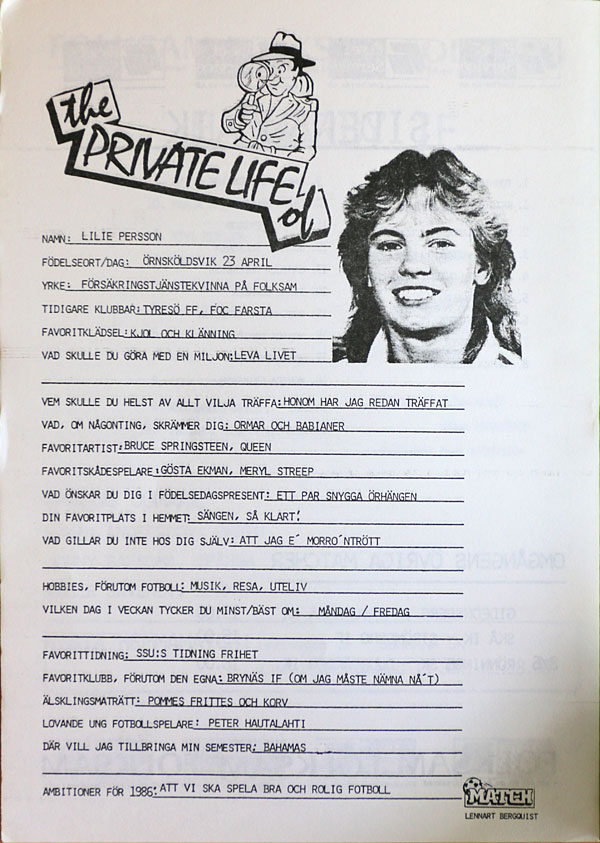 the
PRIVATE LIFE
of
NAMN: LILIE PERSSON
FÖDELSEORT/DAG: ÖRNSKÖLDSVIK 23 APRIL
YRKE: FÖRSÄKRINGSTJÄNSTEKVINNA PÅ FOLKSAM
TIDIGARE KLUBBAR: TYRESÖ FF, FOC FARSTA
FAVORITKLÄDSEL: KJOL OCH KLÄNNING
VAD SKULLE DU GÖRA MED EN MILJON: LEVA LIVET
VEM SKULLE DU HELST AV ALLT VILJA TRÄFFA: HONOM HAR JAG REDAN TRÄFFAT
VAD, OM NÅGONTING, SKRÄMMER DIG: ORMAR OCH BABIANER
FAVORITARTIST: BRUCE SPRINGSTEEN, QUEEN
FAVORITSKÅDESPELARE: GÖSTA EKMAN, MERYL STREEP
VAD ÖNSKAR DU DIG I FÖDELSEDAGSPRESENT: ETT PAR SNYGGA ÖRHÄNGEN
DIN FAVORITPLATS I HEMMET: SÄNGEN, SÅ KLART!
VAD GILLAR DU INTE HOS DIG SJÄLV: ATT JAG E´ MORRO´NTRÖTT
HOBBIES, FÖRUTOM FOTBOLL: MUSIK, RESA, UTELIV
VILKEN DAG I VECKAN TYCKER DU MINST/BÄST OM: MÅNDAG / FREDAG
FAVORITTIDNING: SSU:S TIDNING FRIHET
FAVORITKLUBB, FÖRUTOM DEN EGNA: BRYNÄS IF (OM JAG MÅSTE NÄMNA NÅ´T)
ÄLSKLINGSMATRÄTT: POMMES FRITTES OCH KORV
LOVANDE UNG FOTBOLLSPELARE: PETER HAUTALAHTI
DÄR VILL JAG TILLBRINGA MIN SEMESTER: BAHAMAS
AMBITIONER FÖR 1986: ATT VI SKA SPELA BRA OCH ROLIG FOTBOLL
MATCH
LENNART BERGQUIST